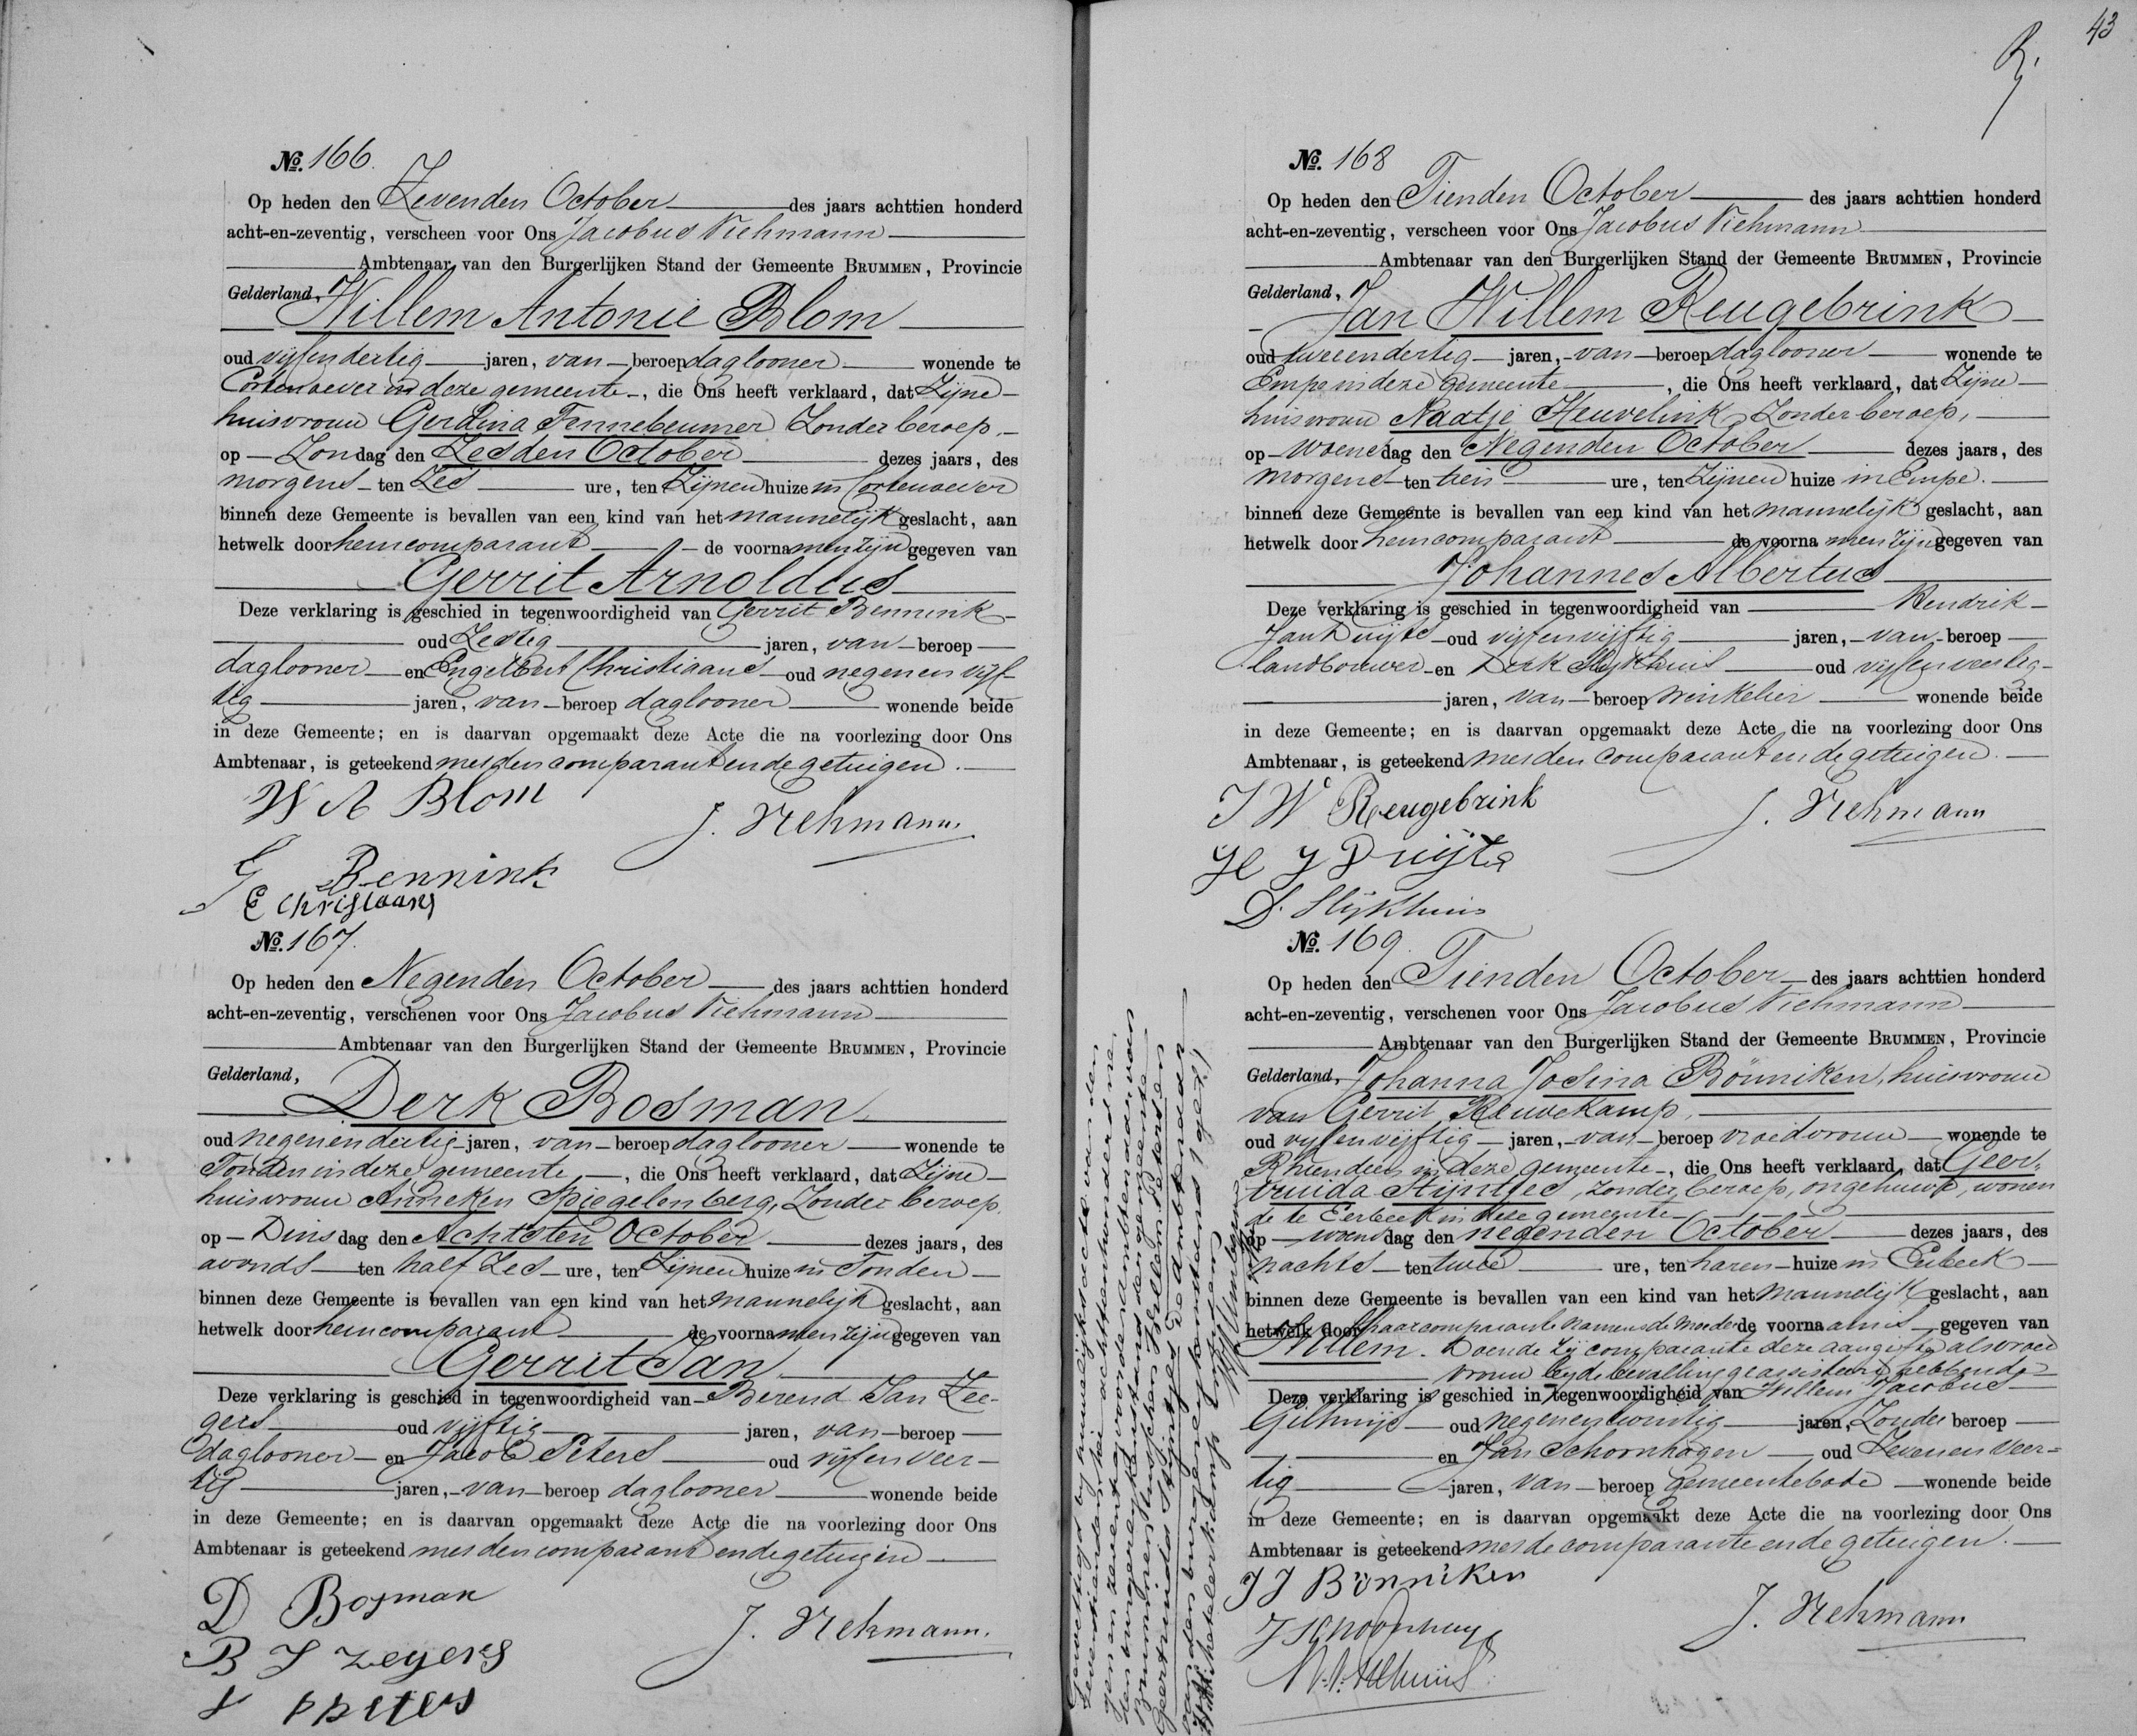 43
No. 166.
Op heden den Zevenden October des jaars achttien honderd
acht-en-zeventig, verscheen voor Ons Jacobus Viehmann
Ambtenaar van den Burgerlijken Stand der Gemeente BRUMMEN, Provincie
Gelderland,
Willem Antonie Blom
oud vijfendertig jaren, van beroep daglooner wonende te
Cortenoever in deze gemeente, die Ons heeft verklaard, dat Zijne
huisvrouw Gerdina Tennebeumer Zonder beroep,
op Zondag den Zesden October dezes jaars, des
morgens ten Zes ure, ten Zijnen huize in Cortenoever
binnen deze Gemeente is bevallen van een kind van het mannelijk geslacht, aan
hetwelk door hem comparant de voornamen zijn gegeven van
Gerrit Arnoldus
Deze verklaring is geschied in tegenwoordigheid van Gerrit Bennink
oud Zestig jaren, van beroep
daglooner en Engelbert Christiaans oud negenen vijf
tig jaren, van beroep daglooner wonende beide
in deze Gemeente; en is daarvan opgemaakt deze Acte die na voorlezing door Ons
Ambtenaar, is geteekend met den comparant en de getuigen.
W A Blom
J. Viehmann.
G Bennink
E Christaans
No. 167.
Op heden den Negenden October des jaars achttien honderd
acht-en-zeventig, verschenen voor Ons Jacobus Viehmann
Ambtenaar van den Burgerlijken Stand der Gemeente BRUMMEN, Provincie
Gelderland,
Derk Bosman
oud negenendertig jaren, van beroep daglooner wonende te
Tonden in deze gemeente, die Ons heeft verklaard, dat Zijne
huisvrouw Anneken Spiegelenberg, Zonder beroep,
op Dinsdag den Achtsten October dezes jaars, des
avonds ten half Zes ure, ten Zijnen huize in Tonden
binnen deze Gemeente is bevallen van een kind van het mannelijk geslacht, aan
hetwelk door hem comparant de voornamen zijn gegeven van
Gerrit Jan
Deze verklaring is geschied in tegenwoordigheid van Berend Jan Zee-
gers oud vijftig jaren, van beroep
daglooner en Jacob Peters oud vijfenveer-
tig jaren, van beroep daglooner wonende beide
in deze Gemeente; en is daarvan opgemaakt deze Acte die na voorlezing door Ons
Ambtenaar is geteekend met den comparant en de getuigen
D Bosman
J. Viehmann.
B J Zegers
No. 168
Op heden den Tienden October des jaars achttien honderd
acht-en-zeventig, verscheen voor Ons Jacobus Viehmann
Ambtenaar van den Burgerlijken Stand der Gemeente BRUMMEN, Provincie
Gelderland,
Jan Willem Reugebrink
oud tweeendertig jaren, van beroep daglooner wonende te
Empe in deze Gemeente, die Ons heeft verklaard, dat Zijne
huisvrouw Naatje Heuvelink, Zonder beroep,
op Woensdag den Negenden October dezes jaars, des
morgens ten tien ure, ten Zijnen huize in Empe.
binnen deze Gemeente is bevallen van een kind van het mannelijk geslacht, aan
hetwelk door hem comparant de voornamen zijn gegeven van
Johannes Albertus
Deze verklaring is geschied in tegenwoordigheid van Hendrik
Jan Duijts oud vijfenvijftig jaren, van beroep
landbouwer en Derk Slijkhuis oud vijfenveertig
jaren, van beroep winkelier wonende beide
in deze Gemeente; en is daarvan opgemaakt deze Acte die na voorlezing door Ons
Ambtenaar, is geteekend met den comparant en de getuigen.
J W Reugebrink
J. Viehmann
H J Duijts
D. Slijkhuis
No. 169.
Op heden den Tienden October des jaars achttien honderd
acht-en-zeventig, verschenen voor Ons Jacobus Viehmann
Ambtenaar van den Burgerlijken Stand der Gemeente BRUMMEN, Provincie
Gelderland, Johanna Josina Bönniken, huisvrouw
van Gerrit Reuvekamp,
oud vijfenvijftig jaren, van beroep vroedvrouw wonende te
Rhienderen in deze gemeente, die Ons heeft verklaard, dat Geer-
truida Stijntjes, zonder beroep, ongehuwd, wonen
de te Eerbeek in deze gemeente
op woensdag den negenden October dezes jaars, des
nachts ten twee ure, ten haren huize in Eerbeek
binnen deze Gemeente is bevallen van een kind van het mannelijk geslacht, aan
hetwelk door haar comparante namens de moeder de voornaam is gegeven van
Willem. Doende Zij comparante deze aangifte als vroed
vrouw bij de bevalling geassisteerd hebbende
Deze verklaring is geschied in tegenwoordigheid van Willem Jacobus
oud negenentwintig jaren, Zonder beroep
en Jan Schoonhagen oud Zevenenveer-
tig jaren, van beroep gemeentebode wonende beide
in deze Gemeente; en is daarvan opgemaakt deze Acte die na voorlezing door Ons
Ambtenaar is geteekend met de comparante en de getuigen.
J J Bönniken
J. Viehmann